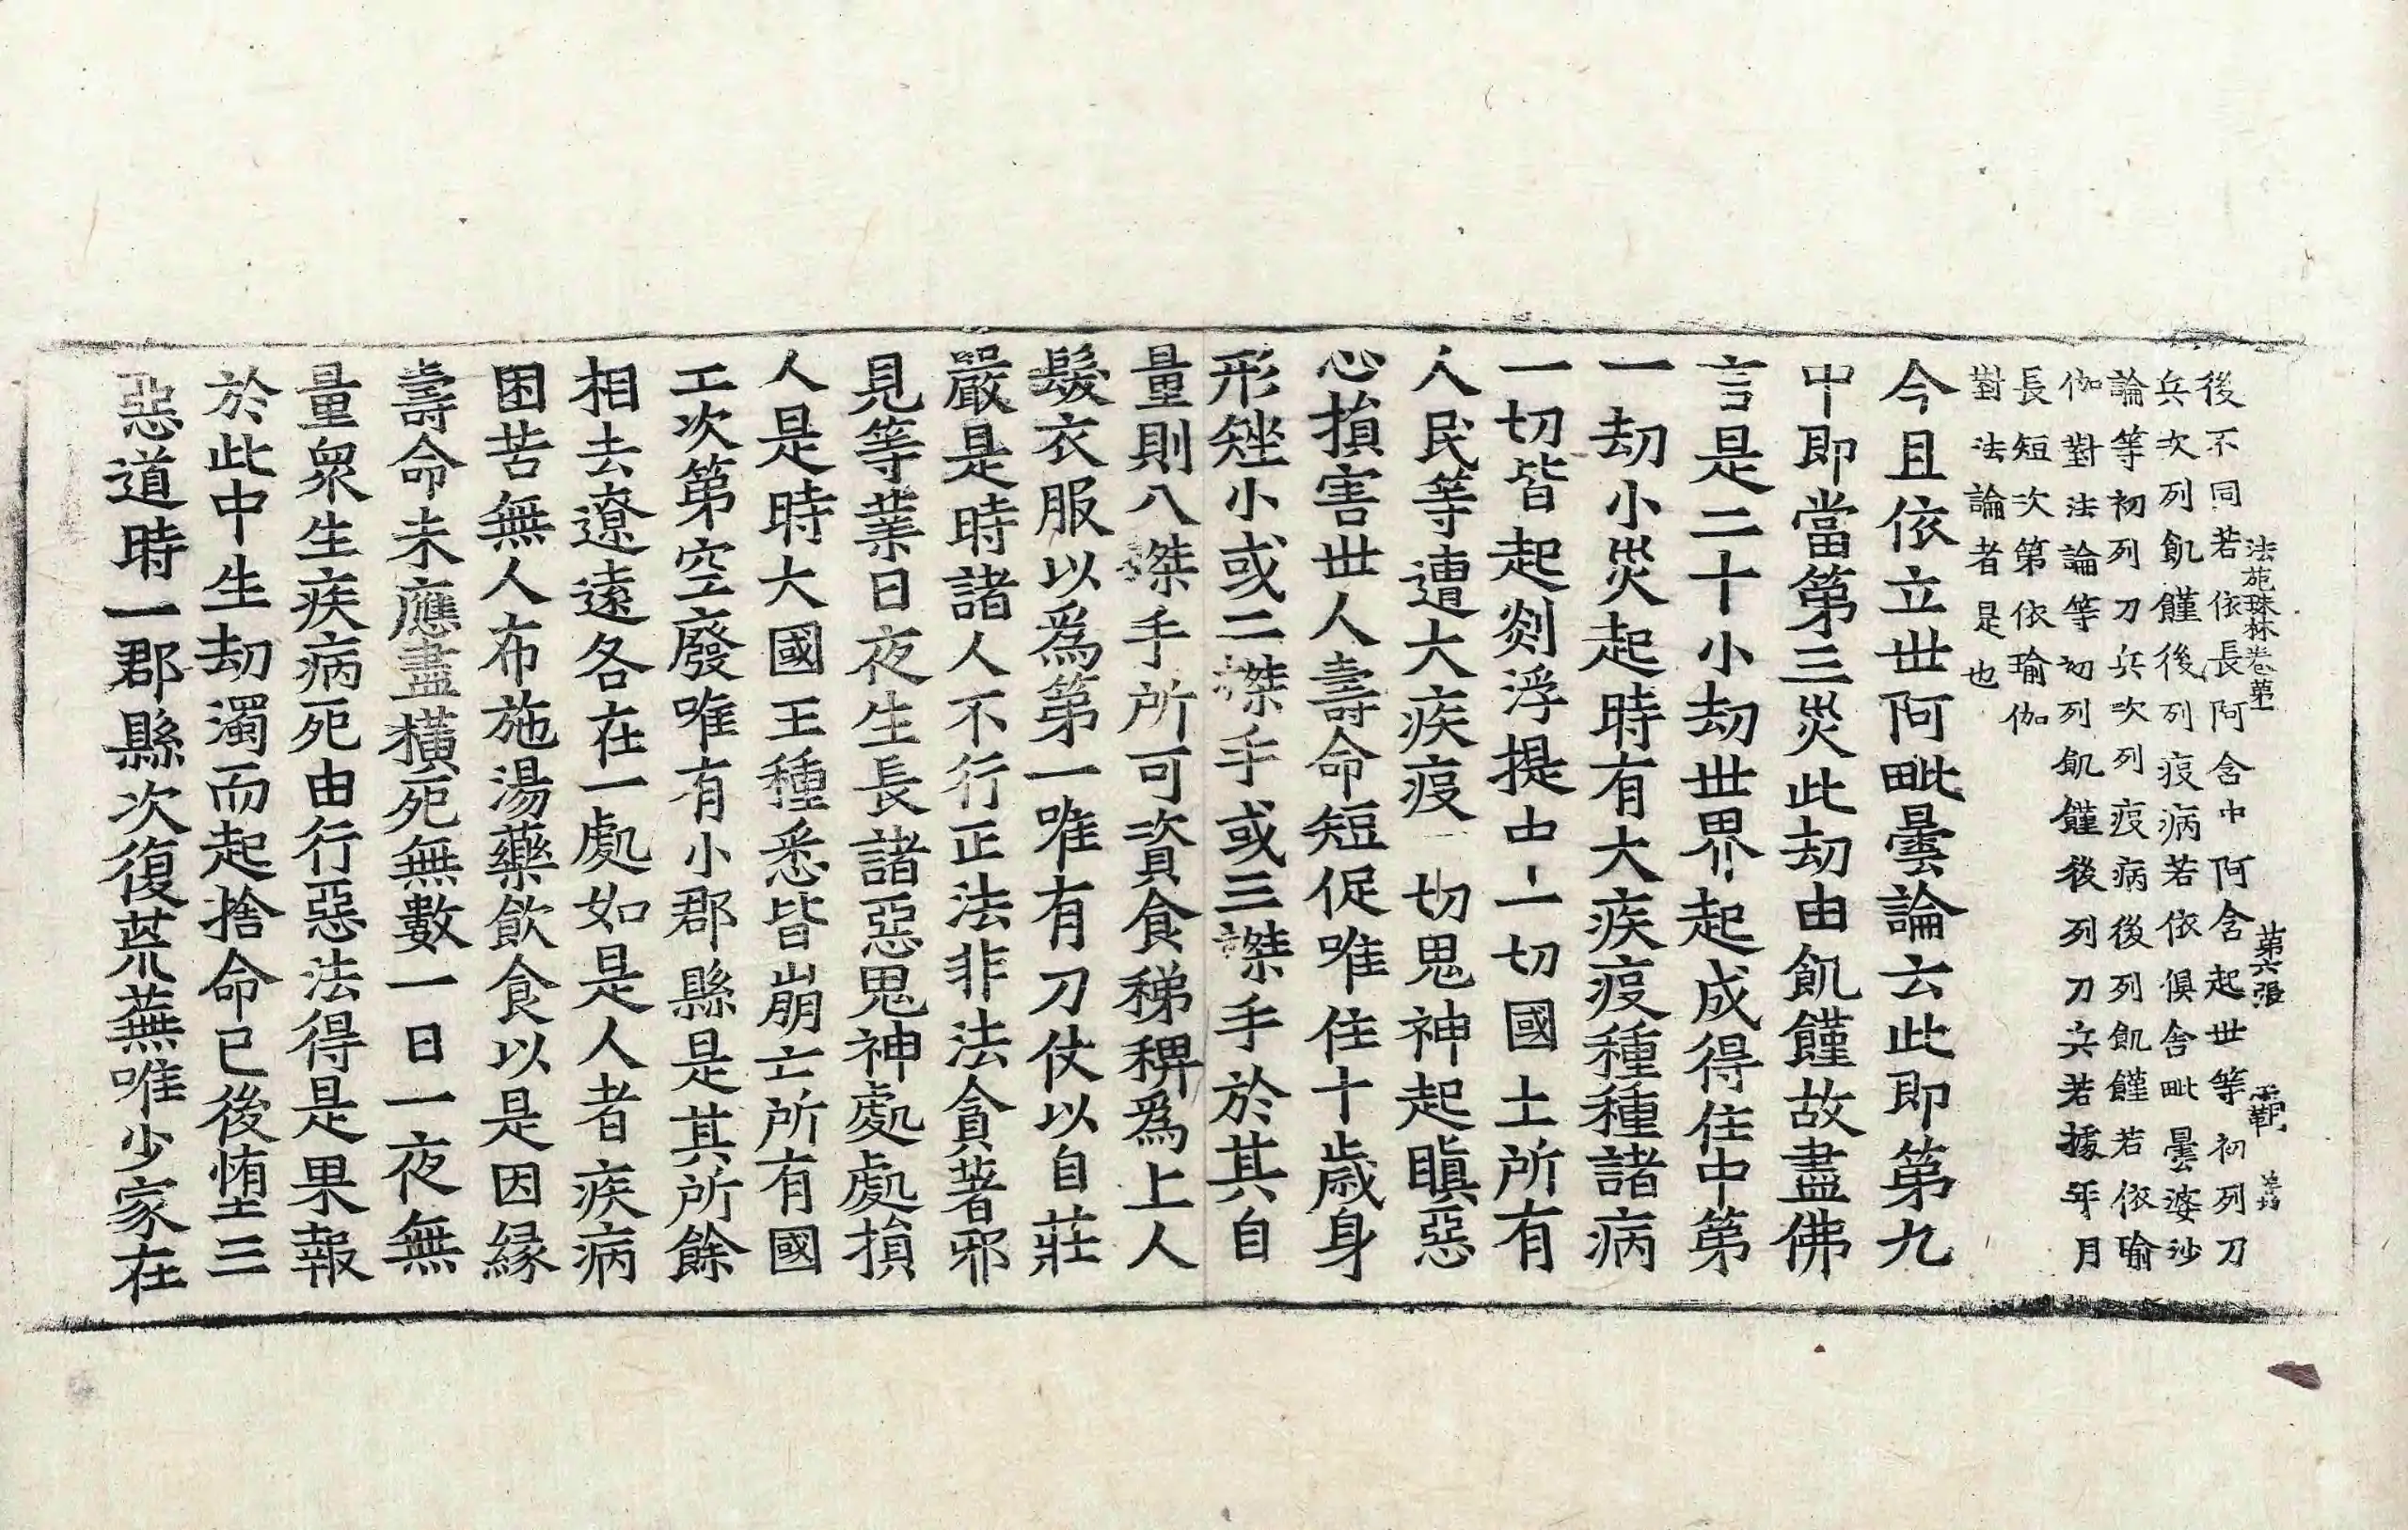 法苑珠林卷第一 第六張 覇
後不同若依長阿含中阿含起世等初列刀
兵次列飢饉後列疫病若依俱舍毗曇婆沙
論等初列刀兵次列疫病後列飢饉若依瑜
伽對法論等初列飢饉後列刀兵若據年月
長短次第依瑜伽
對法論者是也
今且依立世阿毗曇論云此即第九
中即當第三災此劫由飢饉故盡佛
言是二十小劫世界起成得住中第
一劫小災起時有大疾疫種種諸病
一切皆起剡浮提中一切國土所有
人民等遭大疾疫一切鬼神起瞋惡
心損害世人壽命短促唯住十歲身
形矬小或二搩手或三搩手於其自
量則八搩手所可資食稊稗爲上人
髮衣服以爲第一唯有刀仗以自莊
嚴是時諸人不行正法非法貪著邪
見等業日夜生長諸惡鬼神處處損
人是時大國王種悉皆崩亡所有國
土次第空廢唯有小郡縣是其所餘
相去遼遠各在一處如是人者疾病
困苦無人布施湯藥飮食以是因緣
壽命未應盡橫死無數一日一夜無
量衆生疾病死由行惡法得是果報
於此中生劫濁而起捨命已後墮三
惡道時一郡縣次復荒蕪唯少家在